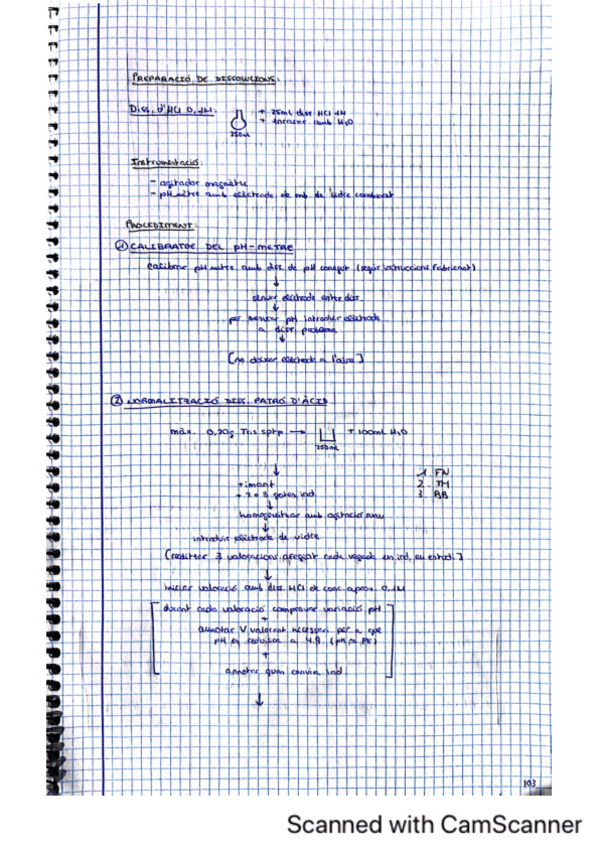 PREPARACIÓ DE DISSOLUCIONS:
Diss. d'HCl 0,1M:
+ 25mL diss HCl 1M
+ enrasar amb H2O
250mL
Instrumentació:
- agitador magnètic
- pHmetre amb elèctrode de mb de vidre combinat
PROCEDIMENT:
① CALIBRATGE DEL pH-METRE
calibrar pHmetre amb diss. de pH conegut (segons instruccions fabricant)
↓
elèctrode entre diss.
↓
per mesurar pH introduir elèctrode
a diss. problema
↓
[no deixar elèctrode a l'aire]
② NORMALITZACIÓ DISS. PATRÓ D'ÀCID
màx. 0,20g Tris sptp → + 100mL H2O
250mL
↓
+ imant
+ 2 o 3 gotes ind
1 FN
2. TM
3 BB
↓
homogeneitzar amb agitació suau
↓
introduir elèctrode de vidre
(realitzar 3 valoracions, afegint cada vegada en ind, eu estudi.)
↓
iniciar valoració amb diss. HCl de conc aprox. 0,1M
durant cada valoració comprovar variació pH
+
annotar V valorant necessari per a que
pH es redueixi a 4.9 (pH ≈ PE)
+
annotar quan canvia ind
↓
103
Scanned with CamScanner